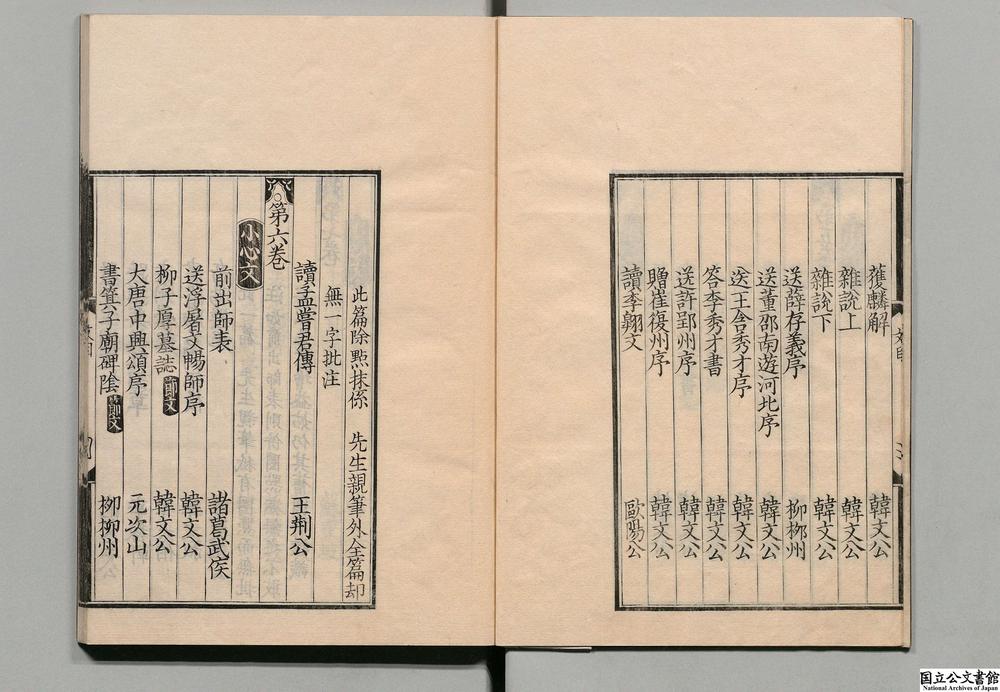 獲麟解 韓文公
雜說上 韓文公
雜說下 韓文公
送薛存義序 柳柳州
送董邵南遊河北序 韓文公
送王含秀才序 韓文公
答李秀才書 韓文公
送許郢州序 韓文公
贈崔復州序 韓文公
讀李翺文 歐陽公
此篇除㸃抹係 先生親筆外全篇却
無一字批注
讀孟嘗君傳 王荆公
第六卷
小心文
前出師表 諸葛武侯
送浮屠文暢師序 韓文公
柳子厚墓誌 節文 韓文公
大唐中興頌序 元次山
書箕子廟碑陰 節文 柳柳州
国立公文書館
National Archives of Japan